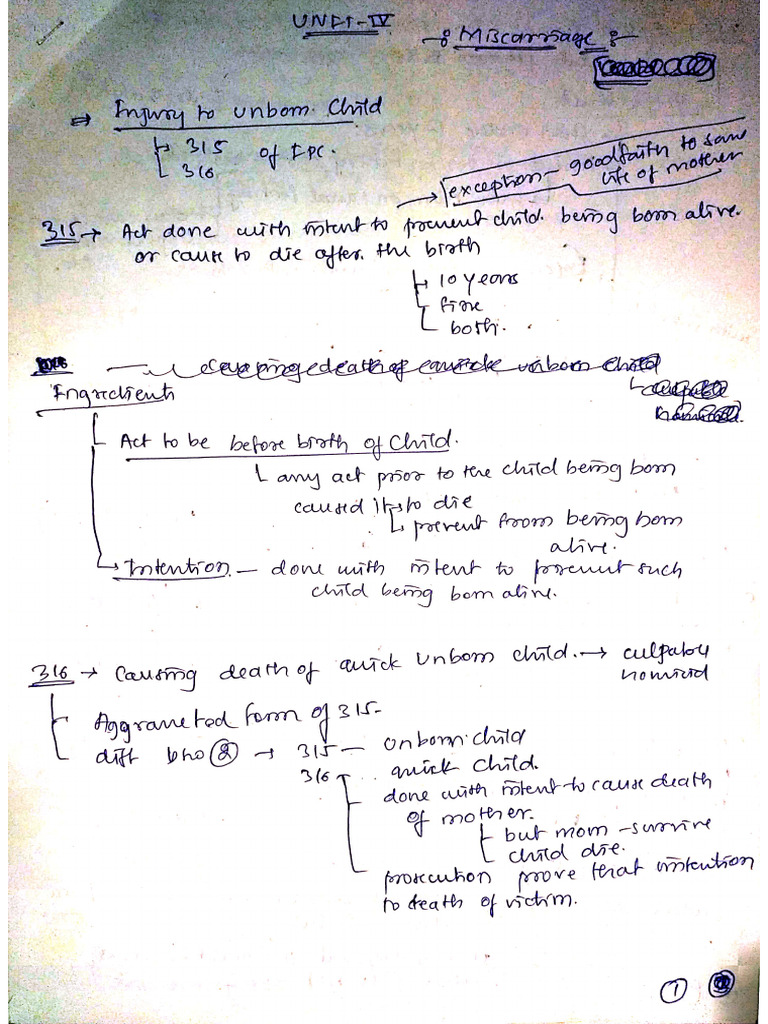 UNIT-IV
Miscarriage
⇒ Injury to unborn child
315
316 of IPC.
exception - goodfaith to save
life of mother
315 → Act done with intent to prevent child being born alive.
or cause to die after the birth
10 years
fine
both.
causing death of quick unborn child
Ingredients
Act to be before birth of child.
any act prior to the child being born
caused it to die
prevent from being born
alive.
Intention - done with intent to prevent such
child being born alive.
316 → Causing death of quick unborn child. → culpable
homicid
Aggraveted form of 315-
diff b/w ② → 315 - unborn child
316 quick child.
done with intent to cause death
of mother.
but mom - survive
child die.
prosecution prove that intention
to death of victim.
1